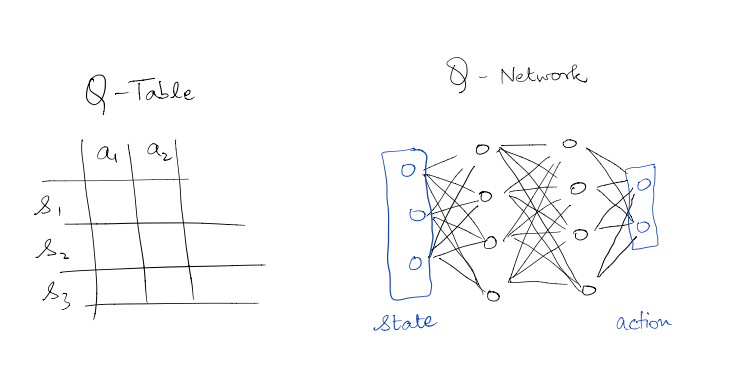 Q - Table
a1 a2
s1
s2
s3
Q - Network
state
action